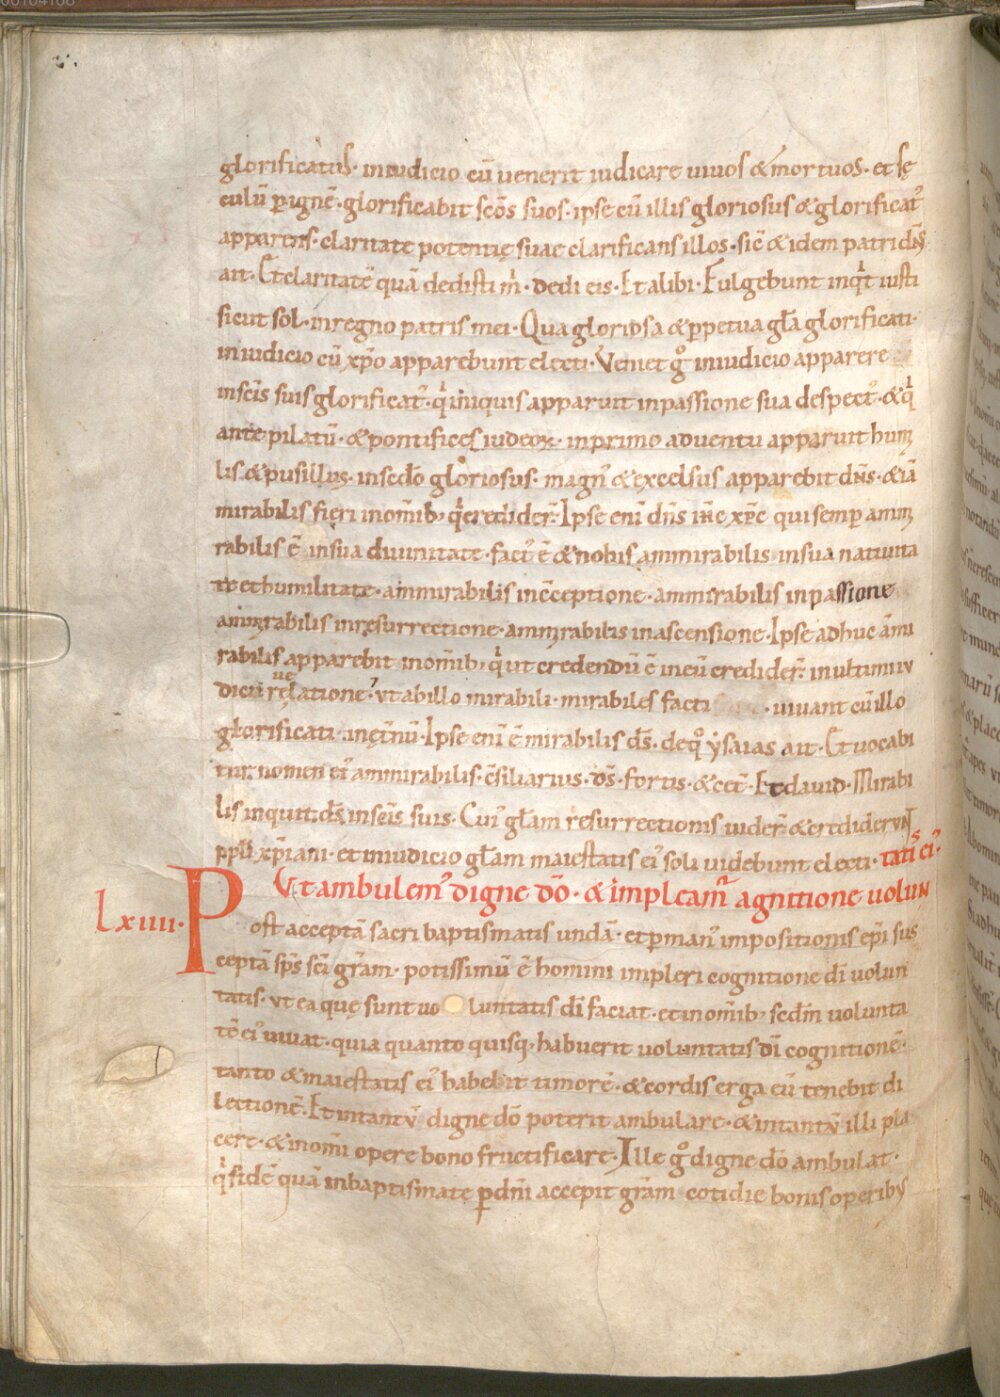 glorificatus· iniudicio cū uenerit iudicare uiuos & mortuos· et sę
culū ꝑ ignē· glorificabit scōs suos· ipse cū illis gloriosus & glorificatꝰ
apparens· claritate potentię suae clarificans illos· sic̄ & idem patri dn̄s
ait· Et claritatē quā dedisti m̍· dedi eis· Et alibi· Fulgebunt inq̍t iusti
sicut sol· inregno patris mei· Qua gloriosa & ꝑpetua gl̄a glorificati·
iniudicio cū xp̄o apparebunt electi· Veniet gͦ iniudicio apparere
inscīs suis glorificatꝰ· q̍ iniquis apparuit inpassione sua despectꝰ· & q̍
ante pilatū· & pontifices iudeoꝝ· inprimo aduentu apparuit humi
lis & pusillus· insecd̄o gloriosus· magnꝰ & excelsus apparebit dn̄s· & iā
mirabilis fieri inom̄ib; q̍ credider̄· Ipse eni dn̄s ih̄c xp̄c qui semꝑ ammi
rabilis ē insua diuinitate· factꝰ ē & nobis ammirabilis insua natiuita
te et humilitate· ammirabilis incēptione· ammirabilis inpassione
ammirabilis inresurrectione· ammirabilis inascensione· Ipse adhuc āmi
rabilis apparebit inom̄ib; q̍ ut credendū ē ineū credider̄· inultimi iu
dicii reuelatione· ut abillo mirabili· mirabiles facti · uiuant cū illo
glorificati· inęt̄nū· Ipse eni ē mirabilis ds̄· deqͦ ysaias ait· Et uocabi
tur nomen eiꝰ ammirabilis· c̄siliarius· ds̄· fortis· & cet̄· Et dauid· Mirabi
lis inquit ds̄ inscīs suis· Cuiꝰ gl̄am resurrectionis uider̄ & crediderunt
ppl̄i xp̄iani· et iniudicio gl̄am maiestatis eiꝰ soli uidebunt electi· tatis eiꝰ·
lxiiii· Vt ambulemꝰ digne dō· & impleamꝰ agnitione uolun
Post acceptā sacri baptismatis undā· et ꝑ manꝰ impositionis ep̄i sus
ceptā sp̄s scī gr̄am· potissimū ē homini impleri cognitione dī uolun
tatis· ut ea quę sunt uo luntatis dī faciat· et inom̄ib; secdm̄ uolunta
tē eiꝰ uiuat· quia quanto quisq; habuerit uoluntatis dī cognitionē·
tanto & maiestatis eiꝰ habebit timorē· & cordis erga eū tenebit di
lectionē· Et intantū digne dō poterit ambulare· & intantū illi pla
cere· & inom̄i opere bono fructificare· Ille gͦ digne dō ambulat·
q̍ fidē quā inbaptismate ꝑ dn̄i accepit gr̄am cotidie bonis operibus